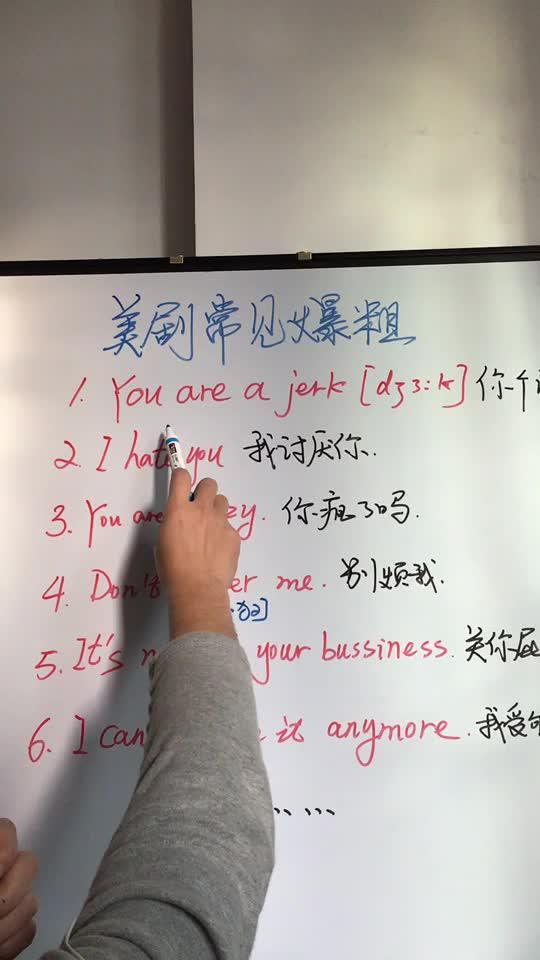 美剧常见爆粗
1. You are a jerk [dʒɜ:k] 你个
2. I hate you 我讨厌你.
3. You are zy. 你疯了吗.
4. Don't er me. 别烦我.
5. It's your bussiness. 关你屁
6. I can it anymore. 我受够
......